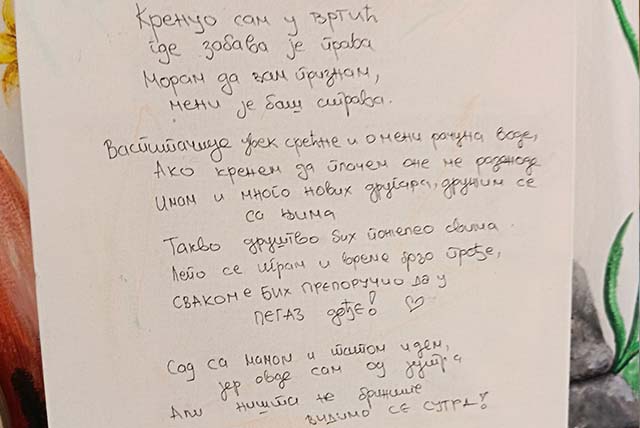 Кренуо сам у вртић
где забава је права
Морам да вам признам,
мени је баш страва.
Васпитачице увек срећне и о мени рачуна воде,
Ако кренем да плачем оне ме разоноде
Имам и много нових другара, дружим се
са њима
Такво друштво бих пожелео свима.
Лепо се играм и време брзо прође,
СВАКОМЕ БИХ ПРЕПОРУЧИО ДА У
ПЕГАЗ дође!
Сад са мамом и татом идем,
јер овде сам од јутра
Али ништа не брините
ВИДИМО СЕ СУТРА!